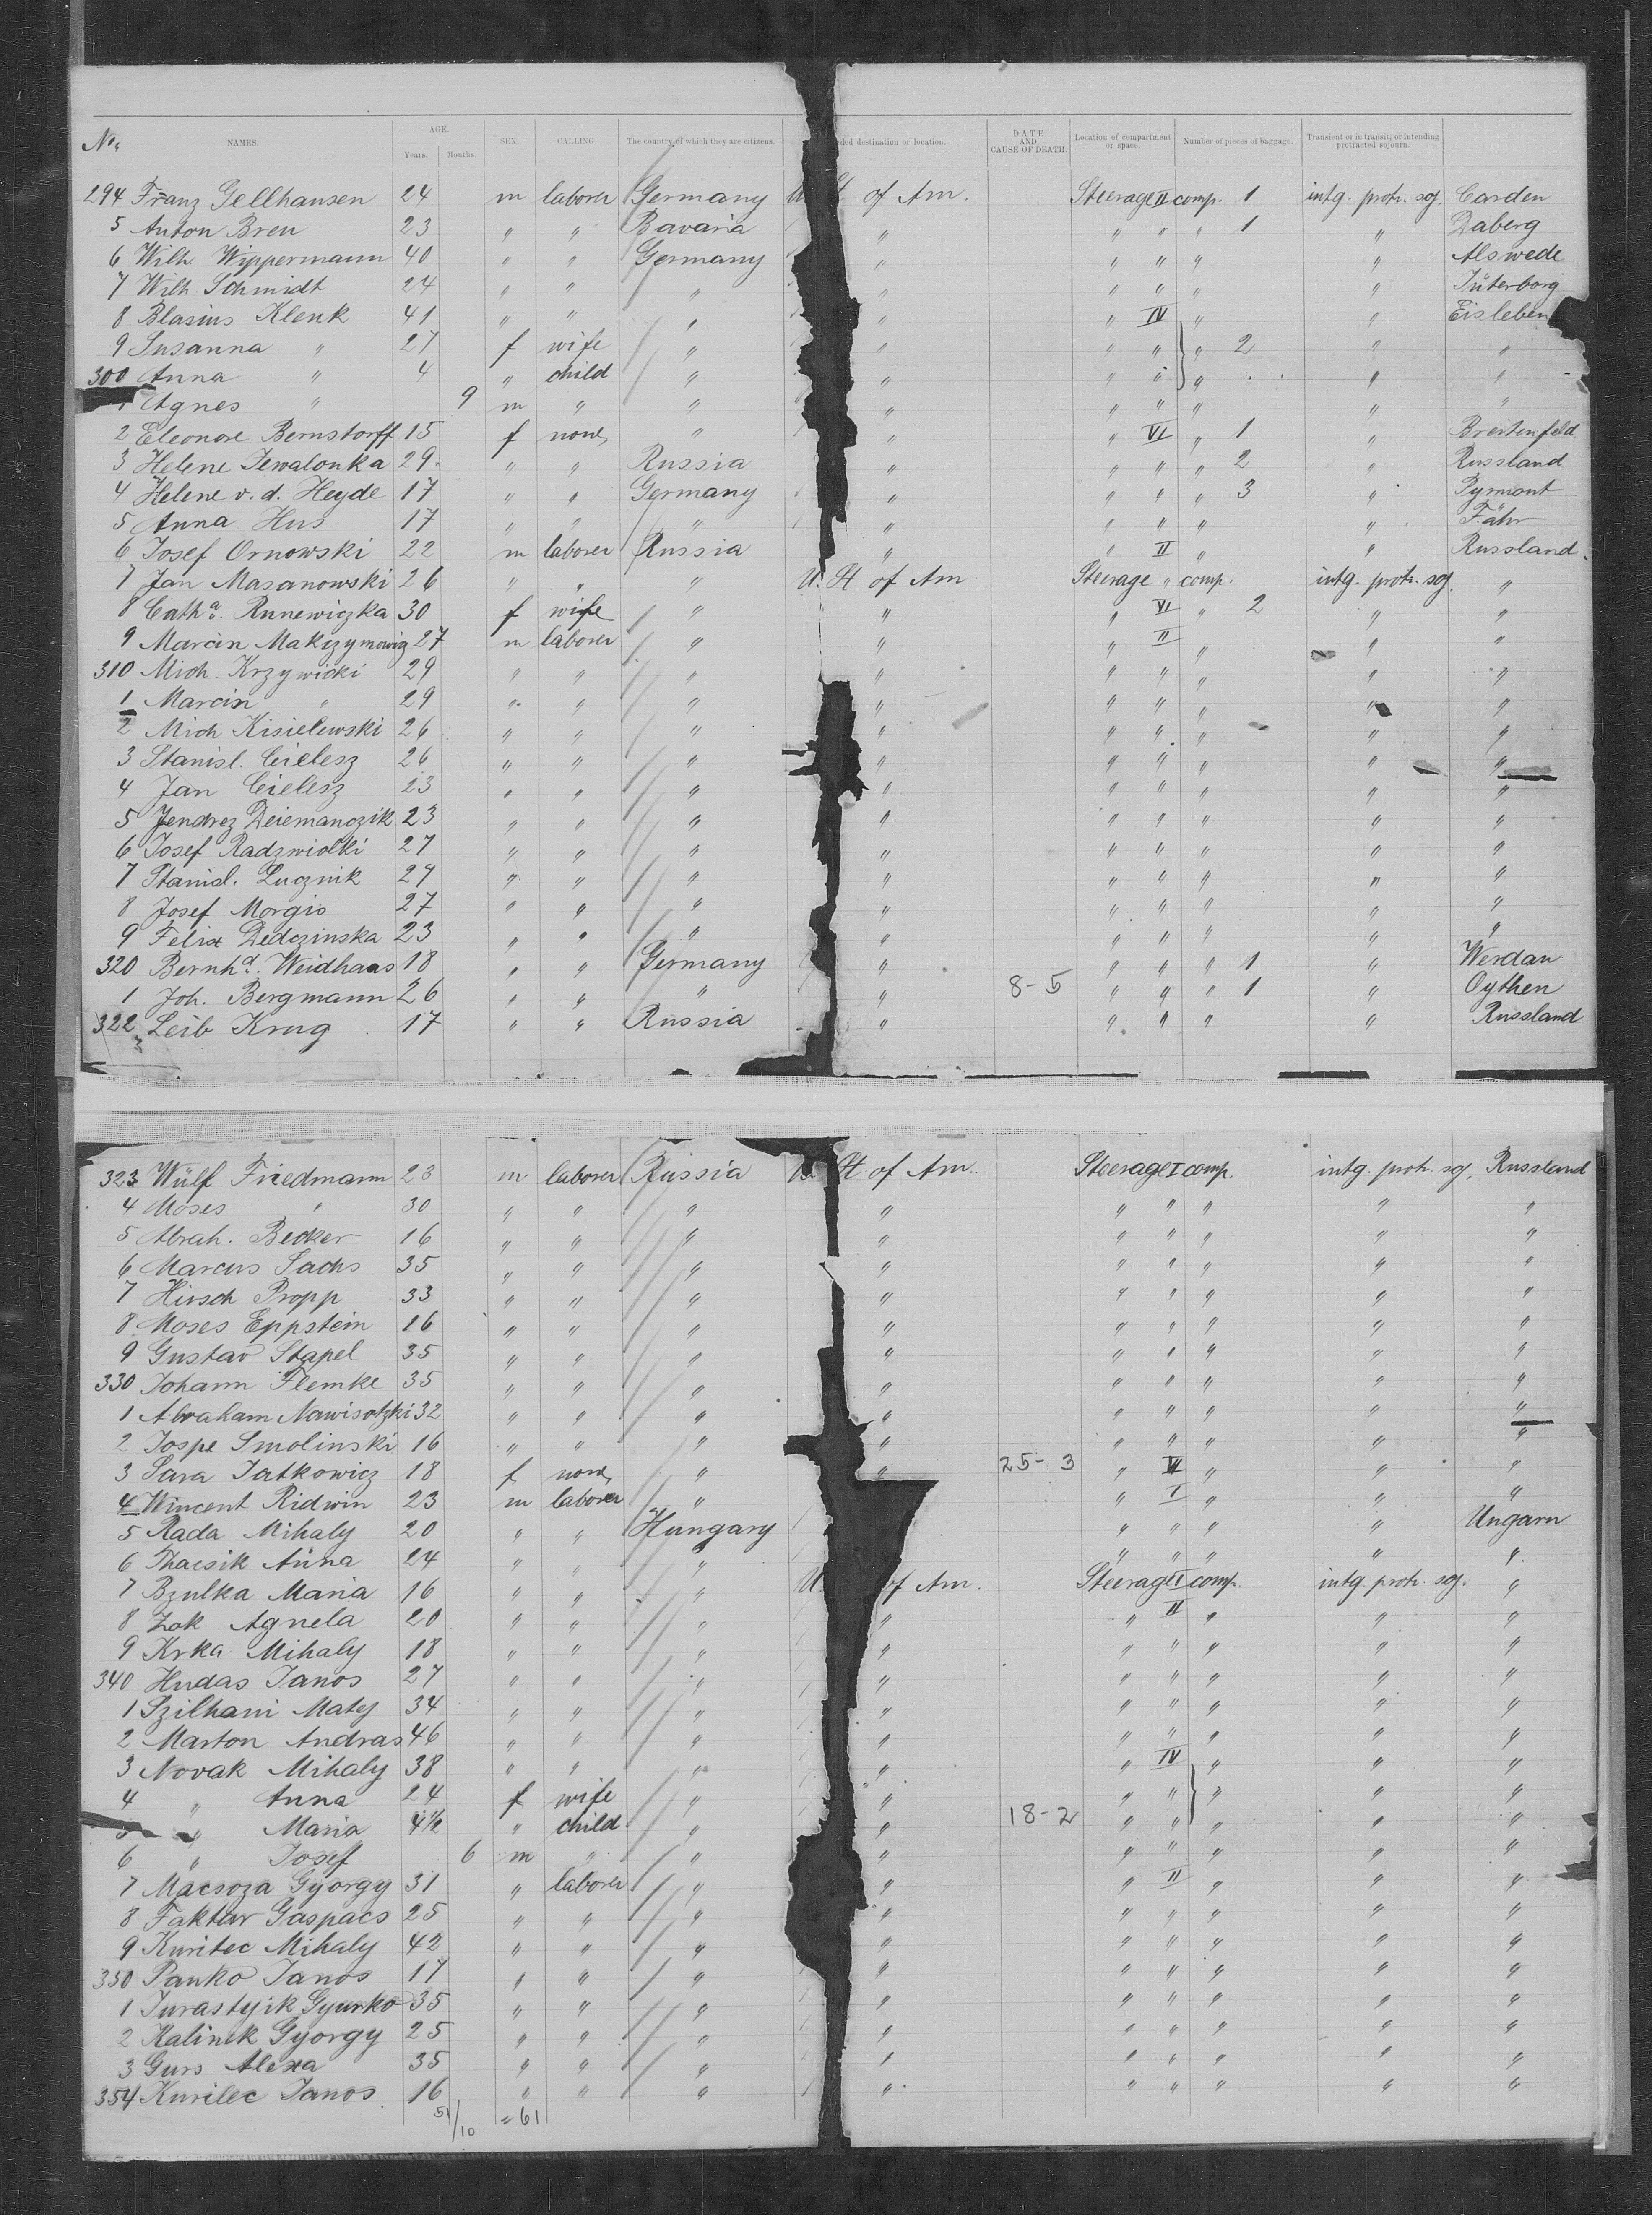 No. NAMES. AGE. Years. Months. SEX. CALLING. The country of which they are citizens. ded destination or location. DATE AND CAUSE OF DEATH. Location of compartment or space. Number of pieces of baggage. Transient or in transit, or intending protracted sojourn.
294 Franz Gellhausen 24 m laborer Germany U. St of Am. Steerage II comp. 1 intg. protr. soj. Carden
5 Anton Breu 23 " " Bavaria " " " " 1 " Daberg
6 Wilh. Wippermann 40 " " Germany " " " " " Alswede
7 Wilh. Schmidt 24 " " " " " " " " Jüterborg
8 Blasius Klenk 41 " " " " " IV " " Eisleben
9 Susanna " 27 f wife " " " " " 2 " "
300 Anna " 4 " child " " " " " " "
1 Agnes " 9 m " " " " " " " "
2 Eleonore Bernstorff 15 f none " " " VI " 1 " Breitenfeld
3 Helene Jewalonka 29 " " Russia " " " " 2 " Russland
4 Helene v. d. Heyde 17 " " Germany " " " " 3 " Pyrmont
5 Anna Hus 17 " " " " " " " " Fähr
6 Josef Ornowski 22 m laborer Russia " " II " " Russland
7 Jan Masanowski 26 " " " U. St of Am Steerage " comp. intg. protr. soj. "
8 Catha. Runewiczka 30 f wife " " " VI " 2 " "
9 Marcin Makzymowiz 27 m laborer " " " II " " "
310 Mich. Krzywicki 29 " " " " " " " " "
1 Marcin " 29 " " " " " " " " "
2 Mich Kisielewski 26 " " " " " " " " "
3 Stanisl. Cielesz 26 " " " " " " " " "
4 Jan Cielesz 23 " " " " " " " " "
5 Jendrez Deiemanczik 23 " " " " " " " " "
6 Josef Radzwiolki 27 " " " " " " " " "
7 Stanisl. Lucznik 27 " " " " " " " " "
8 Josef Morgis 27 " " " " " " " " "
9 Felix Dedczinska 23 " " " " " " " " "
320 Bernhd. Weidhaas 18 " " Germany " " " " 1 " Werdau
1 Joh. Bergmann 26 " " " " 8-5 " " " 1 " Oythen
322 Leib Krug 17 " " Russia " " " " " Russland
323 Wülf Friedmann 23 m laborer Russia U. St of Am. Steerage I comp. intg. protr. soj. Russland
4 Moses " 30 " " " " " " " " "
5 Abrah. Becker 16 " " " " " " " " "
6 Marcus Sachs 35 " " " " " " " " "
7 Hirsch Propp 33 " " " " " " " " "
8 Moses Eppstein 16 " " " " " " " " "
9 Gustav Stapel 35 " " " " " " " " "
330 Johann Flemke 35 " " " " " " " " "
1 Abraham Nawisotzki 32 " " " " " " " " "
2 Jospe Smolinski 16 " " " " " " " " "
3 Sara Jatkowicz 18 f none " " 25-3 " VI " " "
4 Wincent Ridwin 23 m laborer " " " I " " "
5 Rada Mihaly 20 " " Hungary " " " " Ungarn
6 Thacsik Anna 24 " " " " " " " "
7 Bzulka Maria 16 " " " U. of Am. Steerage I comp. intg. protr. soj. "
8 Zok Agnela 20 " " " " " II " " "
9 Krka Mihaly 18 " " " " " " " " "
340 Hudas Janos 27 " " " " " " " " "
1 Szilhani Matej 34 " " " " " " " " "
2 Marton Andras 46 " " " " " " " " "
3 Novak Mihaly 38 " " " " " IV " " "
4 " Anna 24 f wife " " " " " " "
5 " Maria 4½ " child " " 18-2 " " " " "
6 " Josef 6 m " " " " " " " "
7 Macsoza György 31 " laborer " " " II " " "
8 Faktar Gaspacs 25 " " " " " " " " "
9 Kuritec Mihaly 42 " " " " " " " " "
350 Panko Janos 17 " " " " " " " " "
1 Jurastyik Gyurko 35 " " " " " " " " "
2 Kalinek György 25 " " " " " " " " "
3 Gurs Alexa 35 " " " " " " " " "
354 Kurilec Janos 16 " " " " " " " " "
51/10 = 61